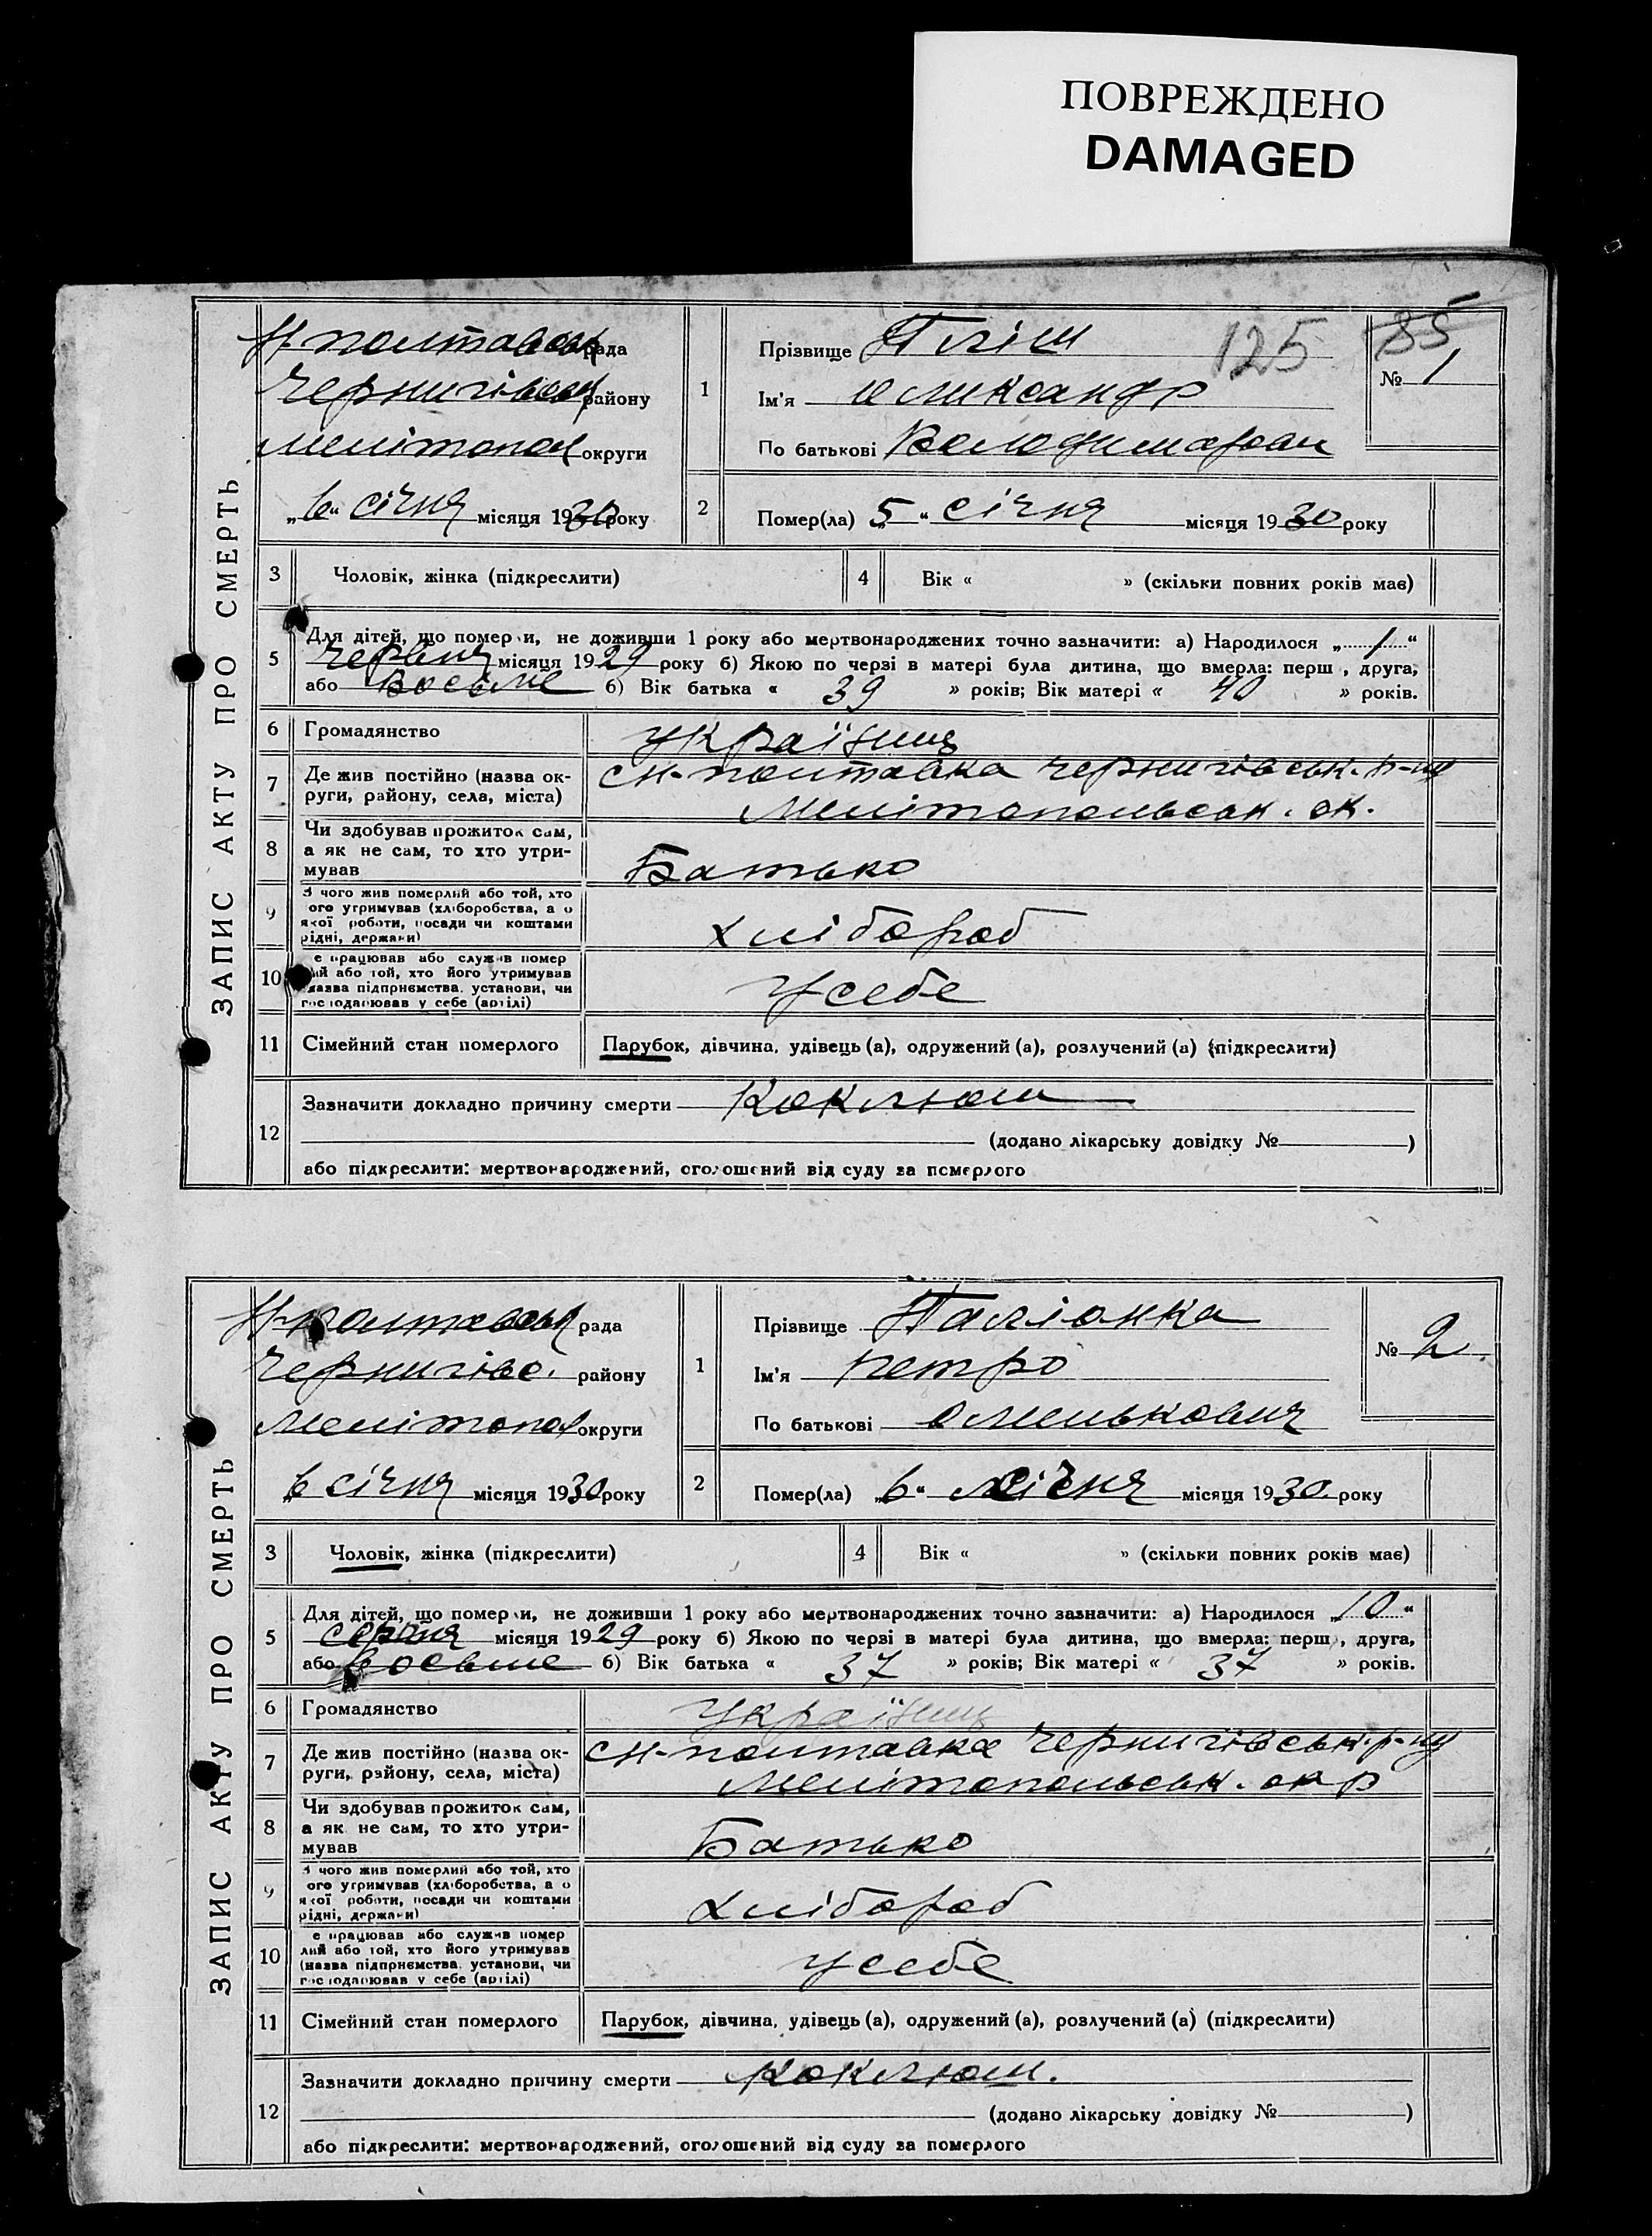 ПОВРЕЖДЕНО
DAMAGED
125
35
ЗАПИС АКТУ ПРО СМЕРТЬ
Н-полтавськ рада
Чернигівськ району
Мелітопол округи
„6“ січня місяця 1930 року
1
Прізвище Пліш
Ім'я Оликсандр
По батькові Володимирович
№ 1
2
Помер(ла) „5“ січня місяця 1930 року
3 Чоловік, жінка (підкреслити)
4 Вік « » (скільки повних років має)
5 Для дітей, що померли, не доживши 1 року або мертвонароджених точно зазначити: а) Народилося „1“
червня місяця 1929 року б) Якою по черзі в матері була дитина, що вмерла: перш , друга,
або восьме б) Вік батька « 39 » років; Вік матері « 40 » років.
6 Громадянство українц
7 Де жив постійно (назва ок-
руги, району, села, міста)
с Н-полтавка Чернигівськ. р-ну
Мелітопольськ. ок.
8 Чи здобував прожиток сам,
а як не сам, то хто утри-
мував
Батько
9 З чого жив померлий або той, хто
ого утримував (хліборобства, а о
якої роботи, посади чи коштами
рідні, держави)
хлібороб
10 е працював або служив помер
ий або той, хто його утримував
назва підприємства, установи, чи
господарював у себе (артілі)
У себе
11 Сімейний стан померлого Парубок, дівчина, удівець (а), одружений (а), розлучений (а) (підкреслити)
12 Зазначити докладно причину смерти Коклюш
(додано лікарську довідку № )
або підкреслити: мертвонароджений, оголошений від суду за померлого
ЗАПИС АКТУ ПРО СМЕРТЬ
Н-полтавськ рада
Чернигівс. району
Мелітопол округи
„6 січня місяця 1930 року
1
Прізвище Паліонка
Ім'я Петро
По батькові Омелькович
№ 2
2
Помер(ла) „6“ січня місяця 1930. року
3 Чоловік, жінка (підкреслити)
4 Вік « » (скільки повних років має)
5 Для дітей, що померли, не доживши 1 року або мертвонароджених точно зазначити: а) Народилося „10“
серпня місяця 1929 року б) Якою по черзі в матері була дитина, що вмерла: перш , друга,
або восьме б) Вік батька « 37 » років; Вік матері « 37 » років.
6 Громадянство українц
7 Де жив постійно (назва ок-
руги, району, села, міста)
с Н-полтавка Чернигівськ. р-ну
Мелітопольськ. окр
8 Чи здобував прожиток сам,
а як не сам, то хто утри-
мував
Батько
9 З чого жив померлий або той, хто
ого утримував (хліборобства, а о
якої роботи, посади чи коштами
рідні, держави)
хлібороб
10 е працював або служив помер
лий або той, хто його утримував
(назва підприємства, установи, чи
господарював у себе (артілі)
У себе
11 Сімейний стан померлого Парубок, дівчина, удівець (а), одружений (а), розлучений (а) (підкреслити)
12 Зазначити докладно причину смерти Коклюш.
(додано лікарську довідку № )
або підкреслити: мертвонароджений, оголошений від суду за померлого